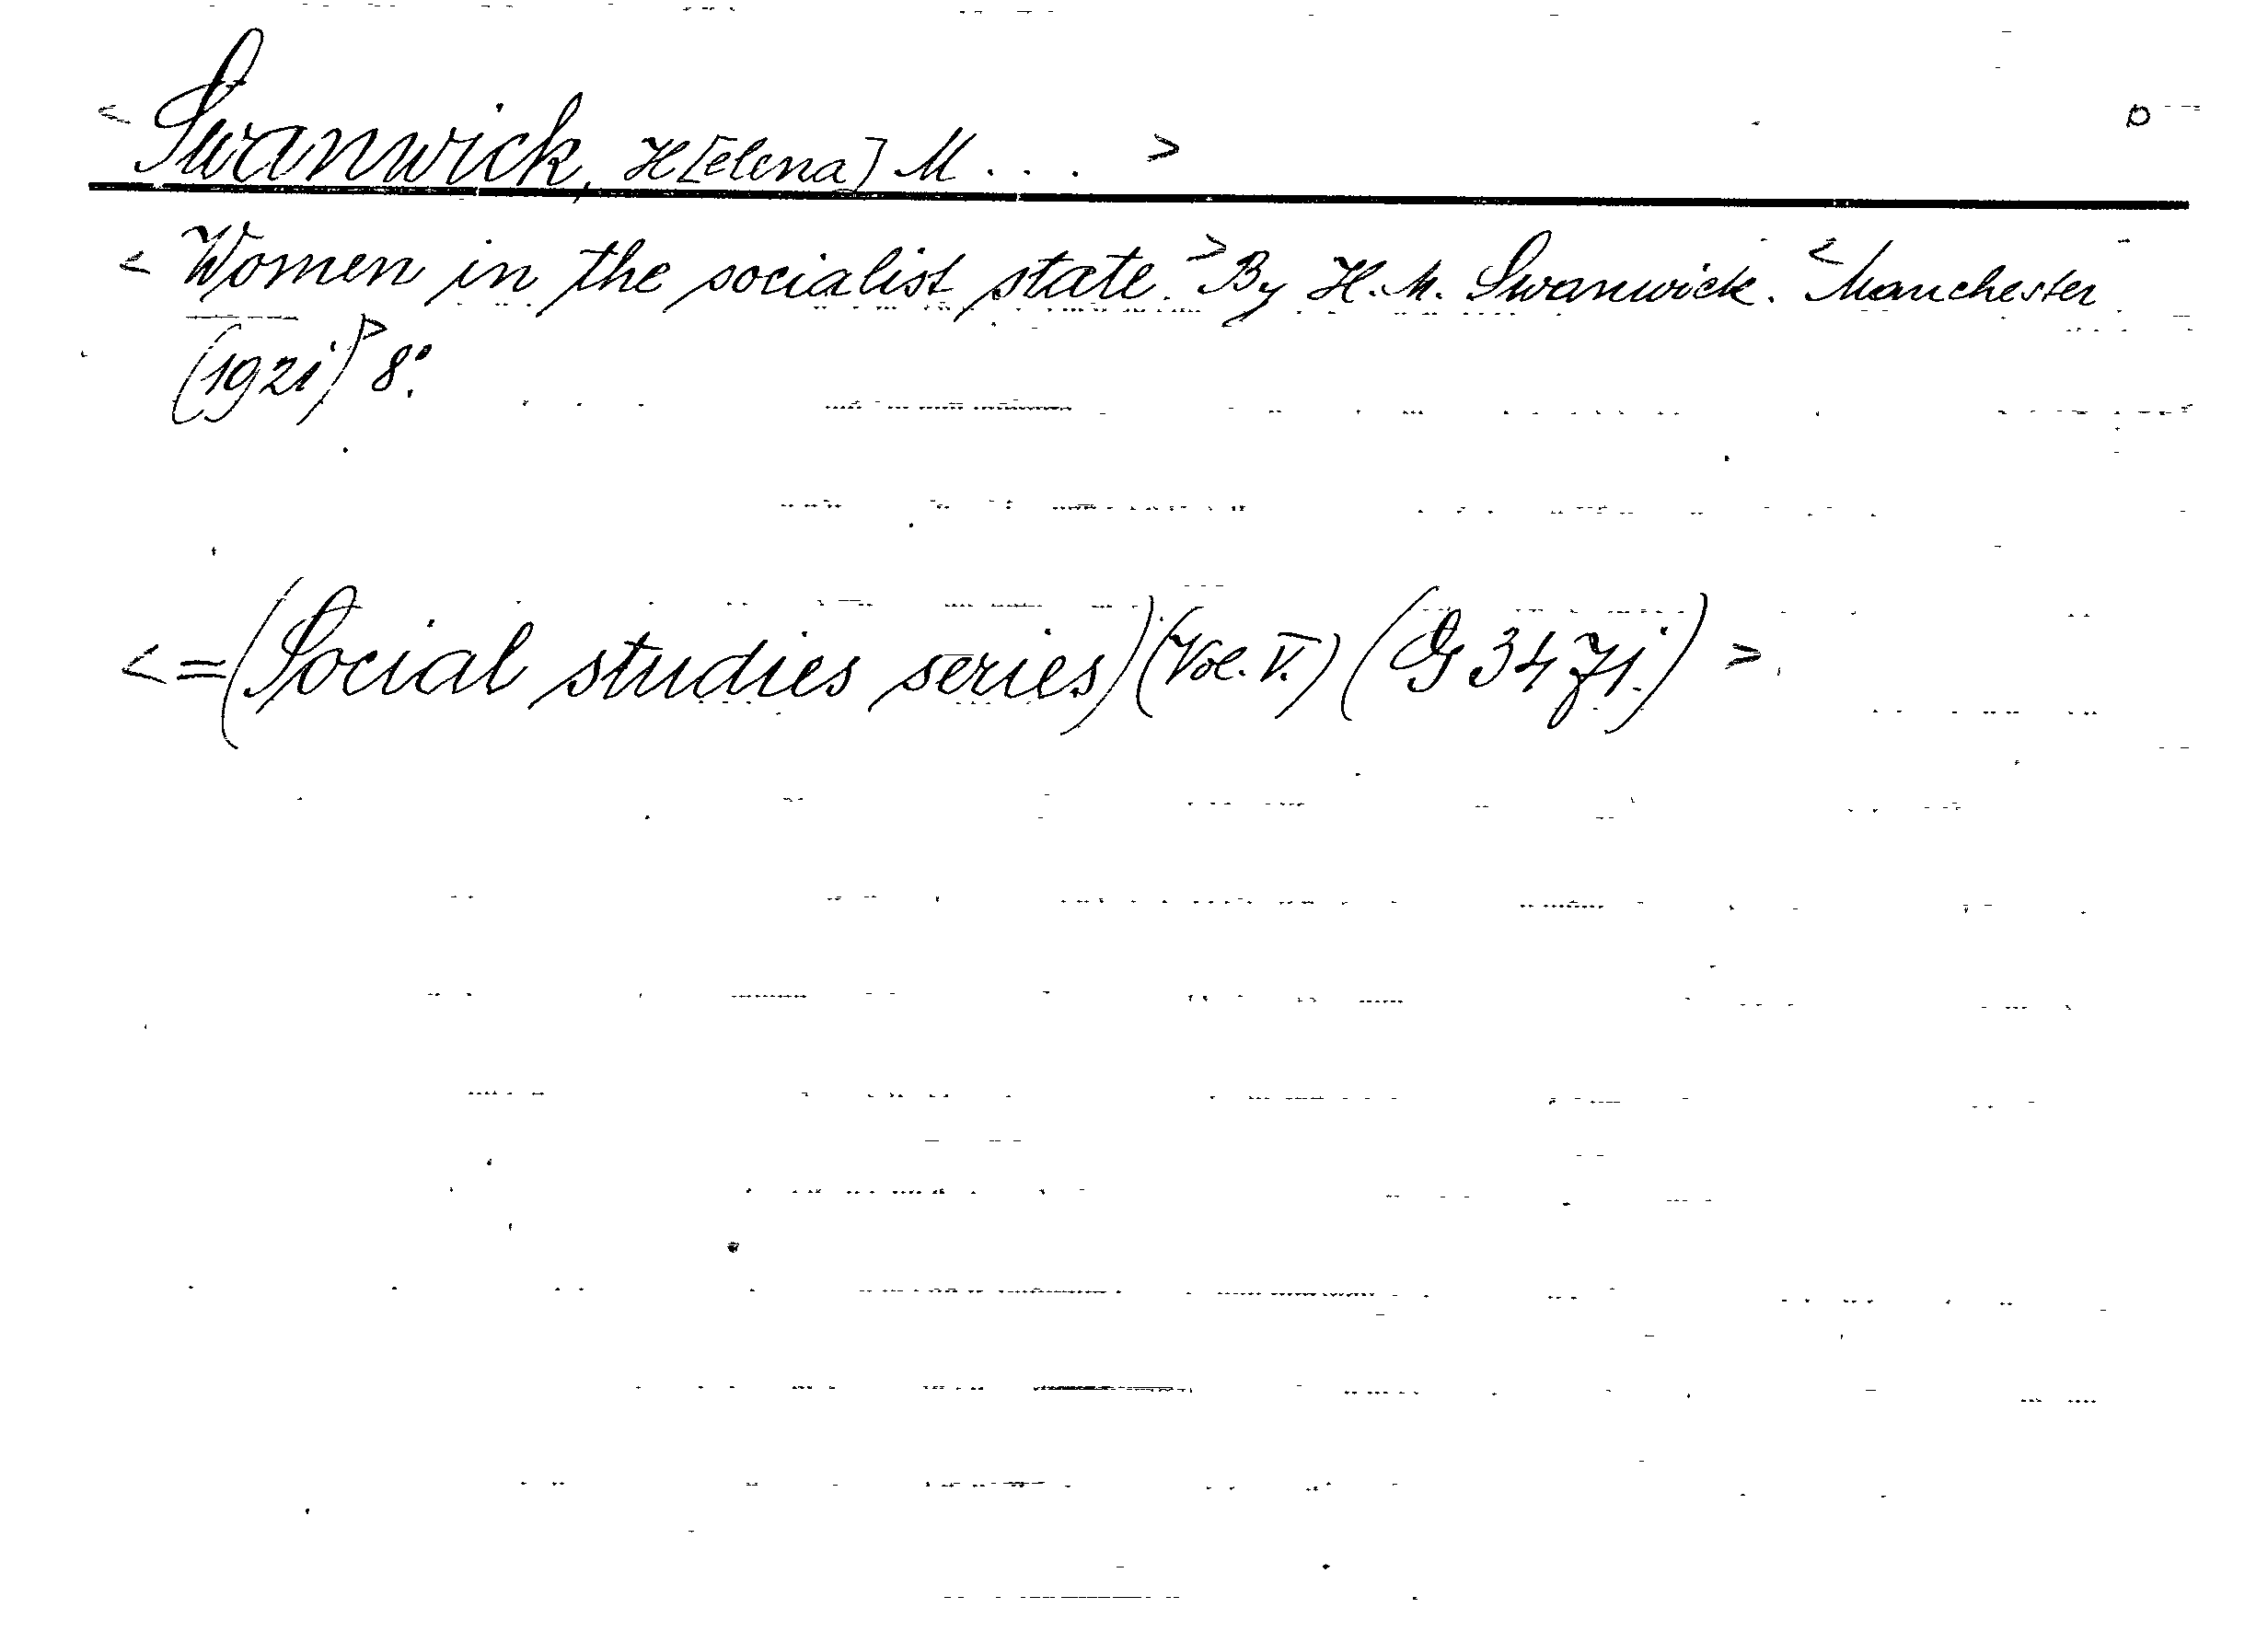 < Swanwick, H[elena] M... >
< Women in the socialist state. > By H. M. Swanwick. < Manchester
(1921) > 8°.
< = (Social studies series) (Vol. V.) (G 3471.) >